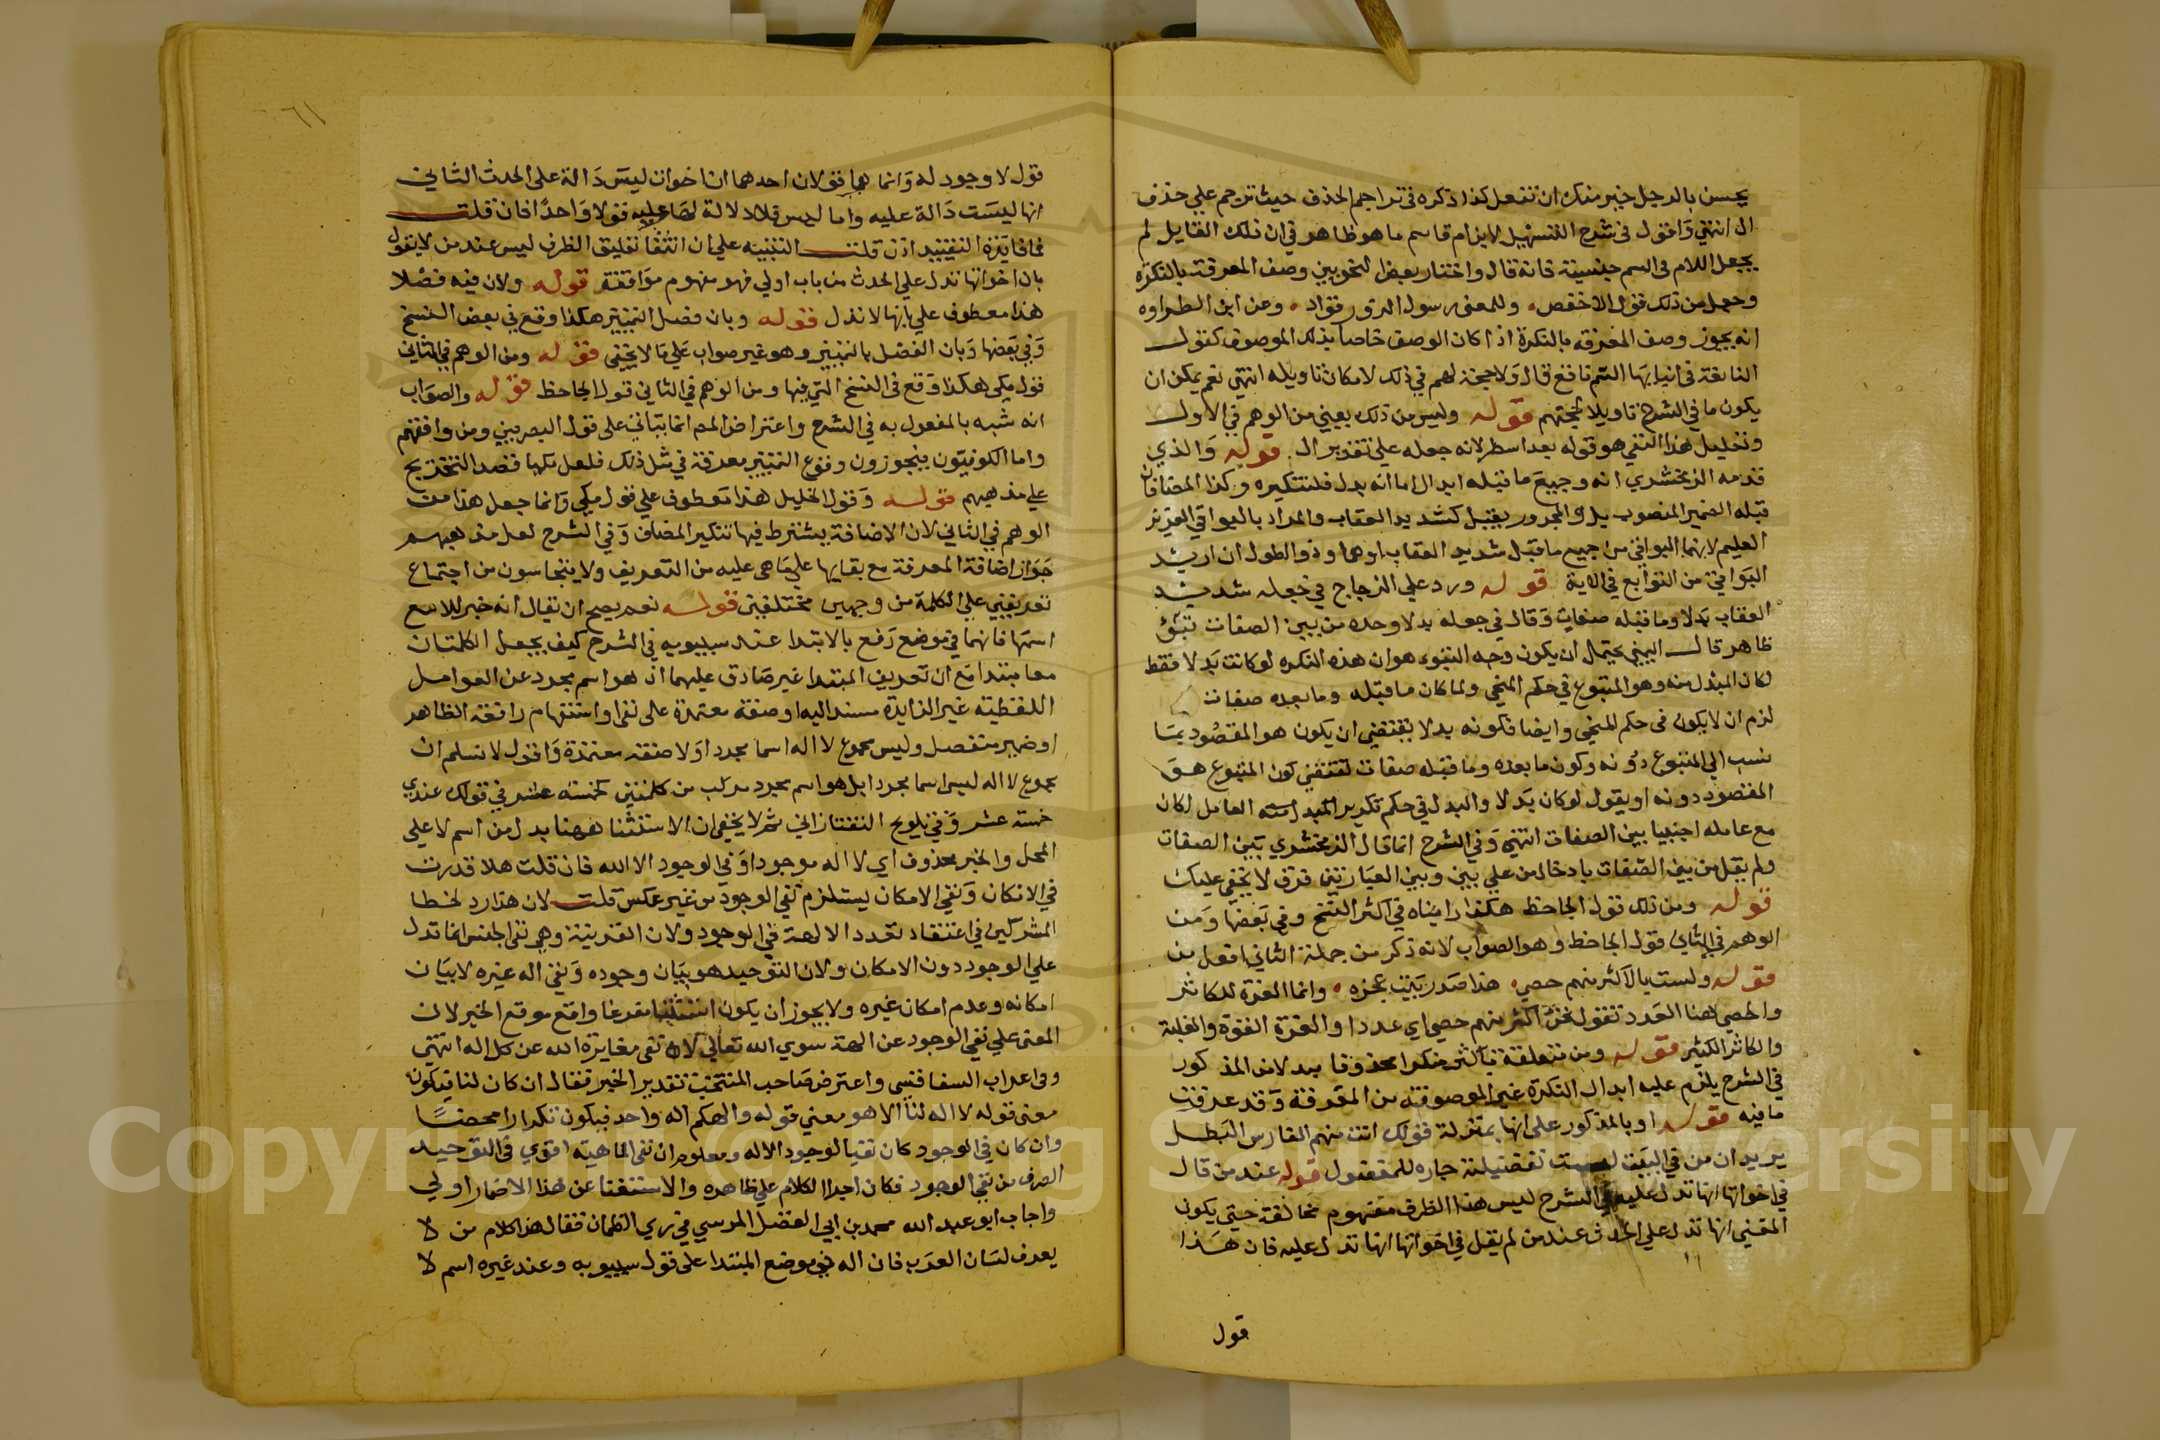 يحسن بالرجل خير منك ان تفعل كذا ذكره في تراجم الحذف حيث ترجم علي حذف
ال انتهي واقول في شرح التسهيل لابن ام قاسم ما هو ظاهر في ان ذلك القايل لم
يجعل اللام في اسم جنسية فانه قال واختار بعض النحويين وصف المعرفة بالنكرة
وجعل من ذلك قول الاخفص وللمغني رسول الزور قواد وعن ابن الطراوه
انه يجوز وصف المعرفه بالنكرة اذا كان الوصف خاصا بذلك الموصوف كقول
النابغة في انيابها السم ناقع قال ولا حجة لهم في ذلك لامكان تاويله انتهي نعم يمكن ان
يكون ما في الشرح تاويلا لحجتهم قوله وليس من ذلك يعني من الوهم في الاول
وتعليل هذا النفي هو قوله بعد اسطر لانه جعله علي تقدير ال قوله والذي
قدمه الزمخشري انه وجميع ما قبله ابدال اما انه بدل فلتنكيره وكذا المضافان
قبله الضمير المنصوب بدل والمجرور بقبل كشديد العقاب والمراد بالبواقي العزيز
العليم لانهما البواقي من جميع ما قبل شديد العقاب اوهما وذو الطول ان اريد
البواقي من التوابع في الاية قوله ورد علي الزجاج في جعله شديد
العقاب بدلا وما قبله صفات وقال في جعله بدلا وحده من بين الصفات نبوٌ
ظاهر قال اليمني يحتمل ان يكون وجه النبوء هو ان هذه النكره لو كانت بدلا فقط
لكان المبدل منه وهو المتبوع في حكم المنحي ولما كان ما قبله وما بعده صفات
لزم ان لا يكون في حكم المنحي وايضا فكونه بدلا يقتضي ان يكون هو المقصود بما
نسب الي المتبوع دونه وكون ما بعده وما قبله صفات تقتضي كون المتبوع هو
المقصود دونه او يقول لو كان بدلا والبدل في حكم تكرير المبدل منه العامل لكان
مع عامله اجنبيا بين الصفات انتهي وفي الشرح انما قال الزمخشري بين الصفات
ولم يقل من بين الصفات بادخال من علي بين وبين العبارتين فرق لا يخفي عليك
قوله ومن ذلك قول الجاحظ هكذا رايناه في اكثر النسخ وفي بعضها ومن
الوهم في الثاني قول الجاحظ وهو الصواب لانه ذكر من جملة الثاني افعل من
قوله ولست بالاكثر منهم حصي هذا صدر بيت عجزه وانما العزة للكاثر
والحصي هنا العدد تقول نحن اكثر منهم حصي اي عددا والعزة القوة والغلبة
والكاثر الكثير قوله ومن متعلقة باكثر منكرا محذوفا بدلا من المذكور
في الشرح يلزم عليه ابدال النكرة غير الموصوفة من المعرفة وقد عرفت
ما فيه قوله او بالمذكور علي انها بمنزلة قولك انت منهم الفارس البطل
يريد ان من في البيت ليست تفضيلية جاره للمفضول قوله عند من قال
في اخواتها انها تدل عليه في الشرح ليس هذا الظرف مفهوم مخالفة حتي يكون
المعني انها تدل علي الحدث عند من لم يقل في اخواتها انها تدل عليه فان هذا
قول
٦١
قول لا وجود له وانما هما قولان احدهما ان اخوات ليس دالة علي الحدث الثاني
انها ليست دالة عليه واما ليس فلا دلالة لها عليه قولا واحدا فان قلت
فما فايدة التقييد اذن قلت التنبيه علي ان انتفا تعليق الظرف ليس عند من لا يقول
بان اخواتها تدل علي الحدث من باب اولي فهو مفهوم موافقة قوله ولان فيه فضلا
هذا معطوف علي بانها لا تدل قوله وبان فصل التمييز هكذا وقع في بعض النسخ
وفي بعضها وبان الفصل بالتمييز وهو غير صواب علي ما لا يخفي قوله ومن الوهم في الثاني
قول مكي هكذا وقع في النسخ التي فيها ومن الوهم في الثاني قول الجاحظ قوله والصواب
انه شبه بالمفعول به في الشرح واعتراض المم انما يتاتي علي قول البصريين ومن وافقهم
واما الكوفيون فيجوزون وقوع التمييز معرفة في مثل ذلك فلعل مكيا قصد التخريج
علي مذهبهم قوله وقول الخليل هذا معطوف علي قول مكي وانما جعل هذا من
الوهم في الثاني لان الاضافة يشترط فيها تنكير المضاف وفي الشرح لعل مذهبهم
جواز اضافة المعرفة مع بقايها علي ما هي عليه من التعريف ولا يتحاسون من اجتماع
تعريفين علي الكلمة من وجهين مختلفين قوله نعم يصح ان يقال انه خبر للا مع
اسمها فانهما في موضع رفع بالابتدا عند سيبويه في الشرح كيف يجعل الكلمتان
معا مبتدا مع ان تعريف المبتدا غير صادق عليهما اذ هو اسم مجرد عن العوامل
اللفظية غير الزايدة مسندا اليه او صفة معتمدة علي نفي او استفهام رافعة الظاهر
او ضمير منفصل وليس مجموع لا اله اسما مجردا ولا صفة معتمدة واقول لا نسلم ان
مجموع لا اله ليس اسما مجردا بل هو اسم مجرد مركب من كلمتين كخمسة عشر في قولك عندي
خمسة عشر وفي تلويح التفتازاني ثم لا يخفي ان الاستثنا ههنا بدل من اسم لا علي
المحل والخبر محذوف اي لا اله موجود او في الوجود الا الله فان قلت هلا قدرت
في الامكان ونفي الامكان يستلزم نفي الوجود من غير عكس قلت لان هذا رد لخطا
المشركين في اعتقاد تعدد الالهة في الوجود ولان القرينة وهي نفي الجنس انما تدل
علي الوجود دون الامكان ولان التوحيد هو بيان وجوده ونفي اله غيره لا بيان
امكانه وعدم امكان غيره ولا يجوز ان يكون استثنا مفرغا واقع موقع الخبر لان
المعني علي نفي الوجود عن الهة سوي الله تعالي لا علي نفي مغايرة الله عن كل اله انتهي
وفي اعراب السفاقسي واعترض صاحب المنتخب تقدير الخبر فقال ان كان لنا فيكون
معني قوله لا اله لنا الا هو معني قوله والهكم اله واحد فيكون تكرارا محضًا
وان كان في الوجود كان نفيا لوجود الاله ومعلوم ان نفي الماهية اقوي في التوحيد
الصرف من نفي الوجود فكان اجرا الكلام علي ظاهره والاستغنا عن هذا الاضمار اولي
واجاب ابو عبد الله محمد بن ابي الفضل المرسي في ري الظمان فقال هذا كلام من لا
يعرف لسان العرب فان اله في موضع المبتدا علي قول سيبويه وعند غيره اسم لا
Copyright © King Saud University